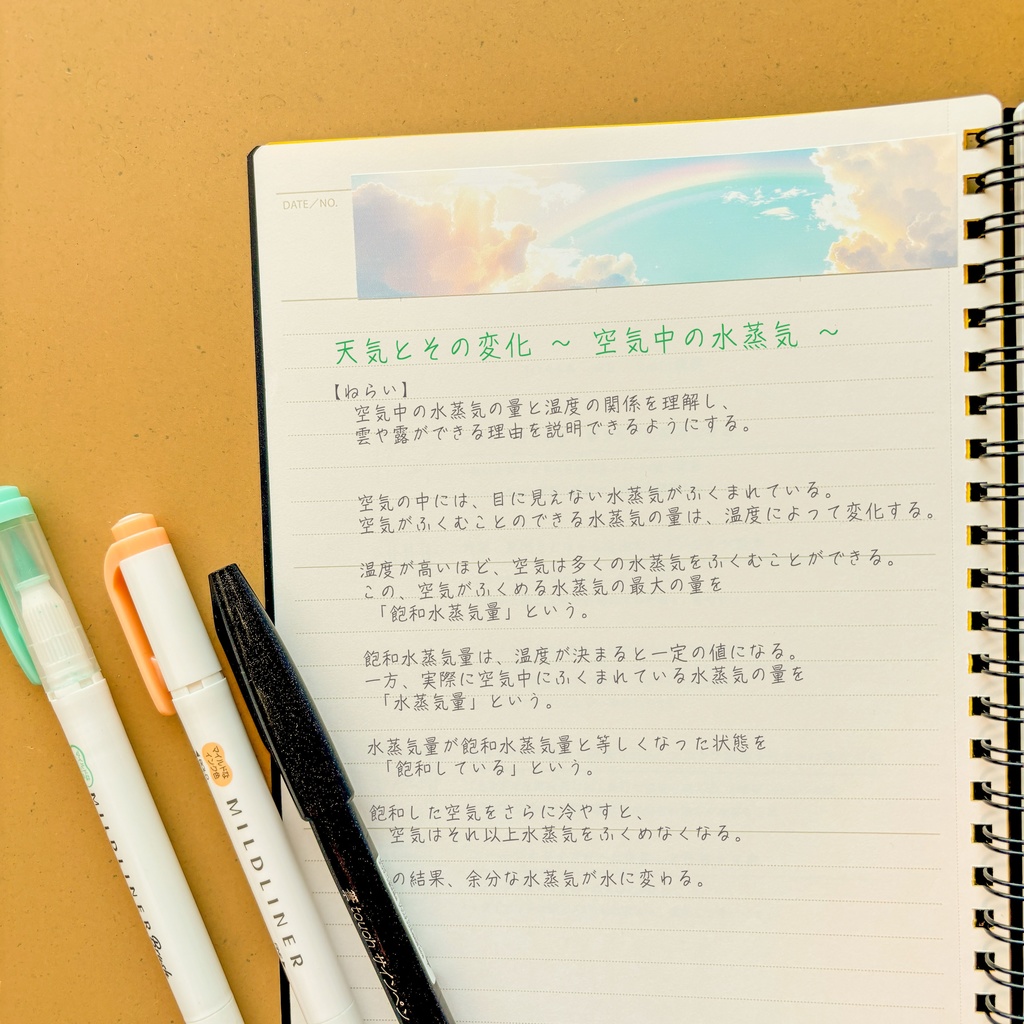 DATE/NO.
天気とその変化 ～ 空気中の水蒸気 ～
【ねらい】
空気中の水蒸気の量と温度の関係を理解し、
雲や露ができる理由を説明できるようにする。
空気の中には、目に見えない水蒸気がふくまれている。
空気がふくむことのできる水蒸気の量は、温度によって変化する。
温度が高いほど、空気は多くの水蒸気をふくむことができる。
この、空気がふくめる水蒸気の最大の量を
「飽和水蒸気量」という。
飽和水蒸気量は、温度が決まると一定の値になる。
一方、実際に空気中にふくまれている水蒸気の量を
「水蒸気量」という。
水蒸気量が飽和水蒸気量と等しくなった状態を
「飽和している」という。
飽和した空気をさらに冷やすと、
空気はそれ以上水蒸気をふくめなくなる。
の結果、余分な水蒸気が水に変わる。
MILDLINER Brush
マイルドな
インク色
MILDLINER
touch サインペン